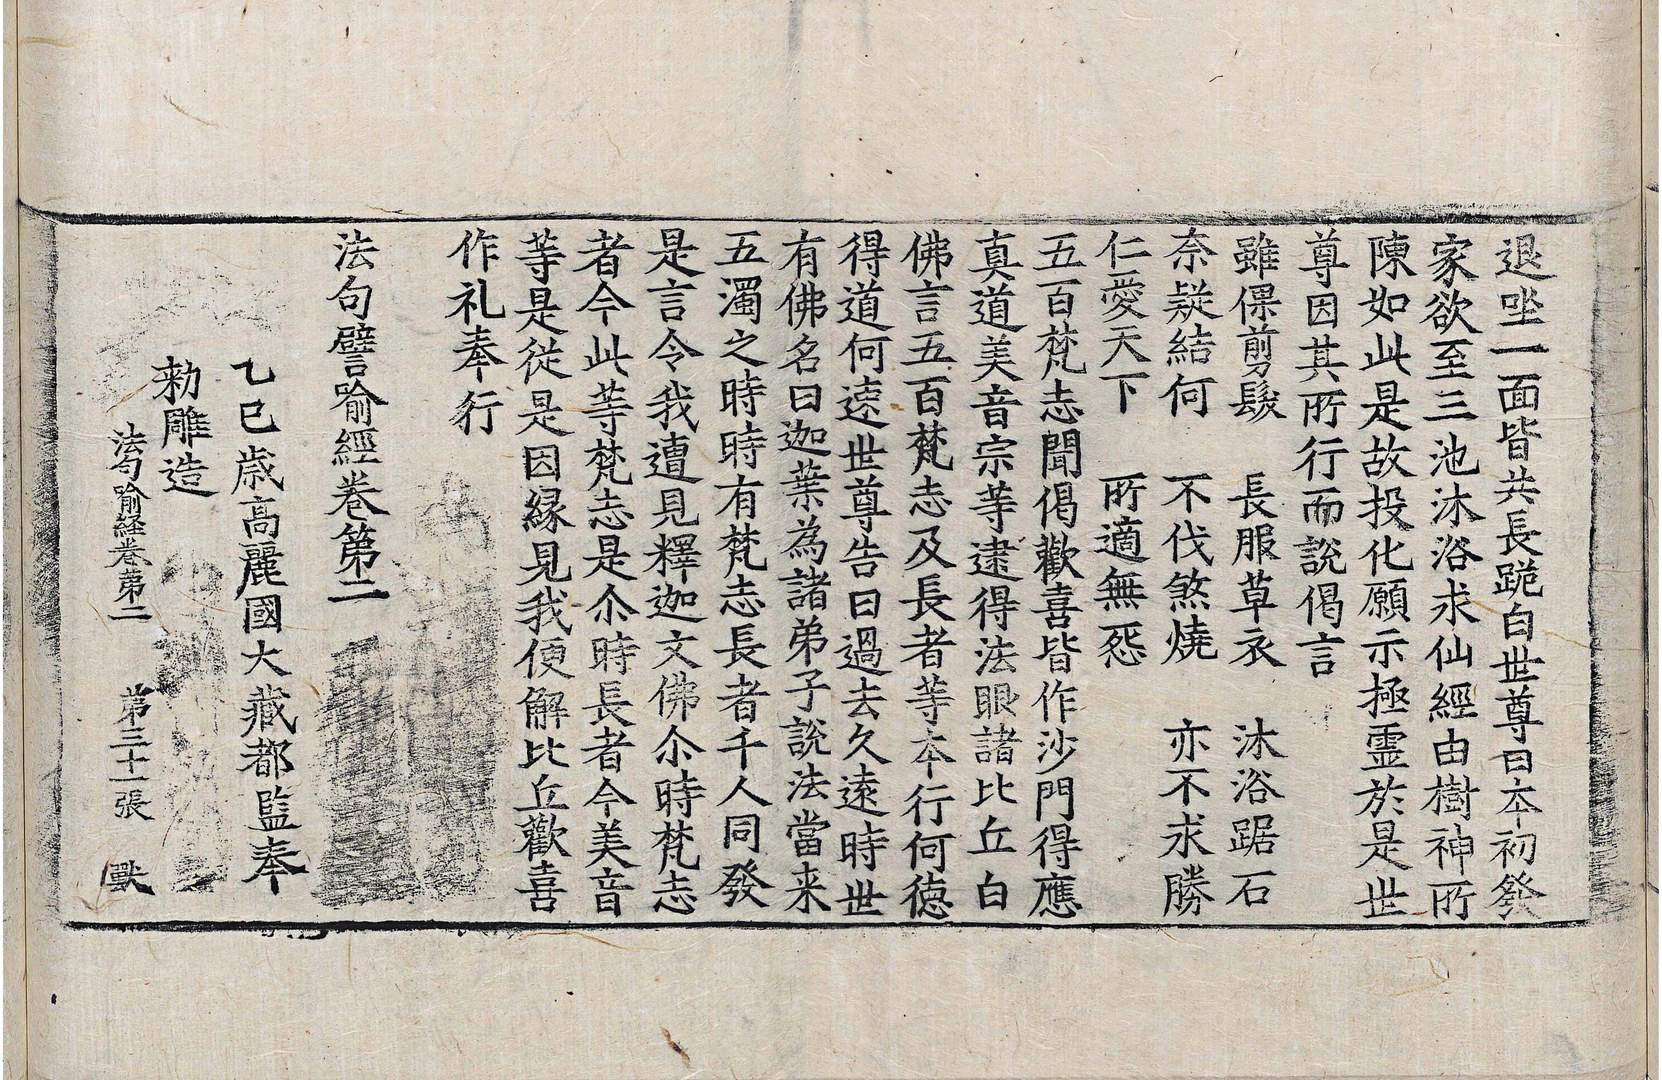 退坐一面皆共長跪白世尊曰本初發
家欲至三池沐浴求仙經由樹神所
陳如此是故投化願示極霊於是世
尊因其所行而說偈言
雖倮剪髮 長服草衣 沐浴踞石
奈疑結何 不伐煞燒 亦不求勝
仁愛天下 所適無怨
五百梵志聞偈歡喜皆作沙門得應
真道美音宗等逮得法眼諸比丘白
佛言五百梵志及長者等本行何德
得道何速世尊告曰過去久遠時世
有佛名曰迦葉為諸弟子說法當来
五濁之時時有梵志長者千人同發
是言令我遭見釋迦文佛尒時梵志
者今此等梵志是尒時長者今美音
等是從是因緣見我便解比丘歡喜
作礼奉行
法句譬喻經卷第二
乙巳歳高麗國大藏都監奉
勑雕造
法句喻経卷第二 第三十一張 歟